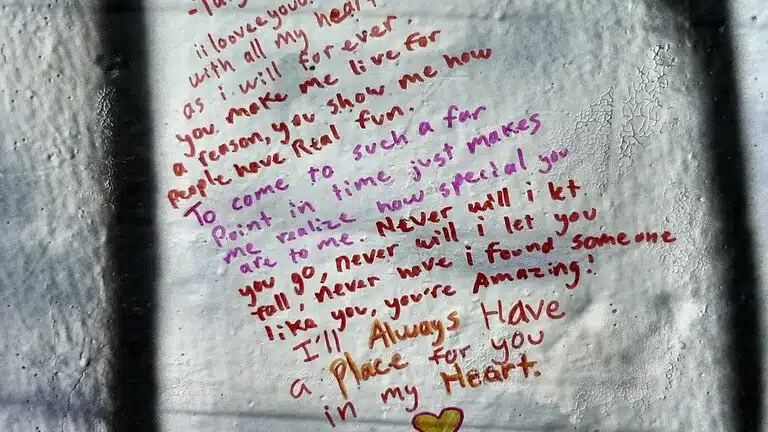 ii loovee youu
with all my heart
as i will forever.
you make me live for
a reason, you show me how
people have Real fun.
To come to such a far
Point in time just makes
me realize how special you
are to me. Never will i let
you go, never will i let you
fall, never have i found someone
like you, you're Amazing!
I'll Always Have
a Place for you
in my Heart.